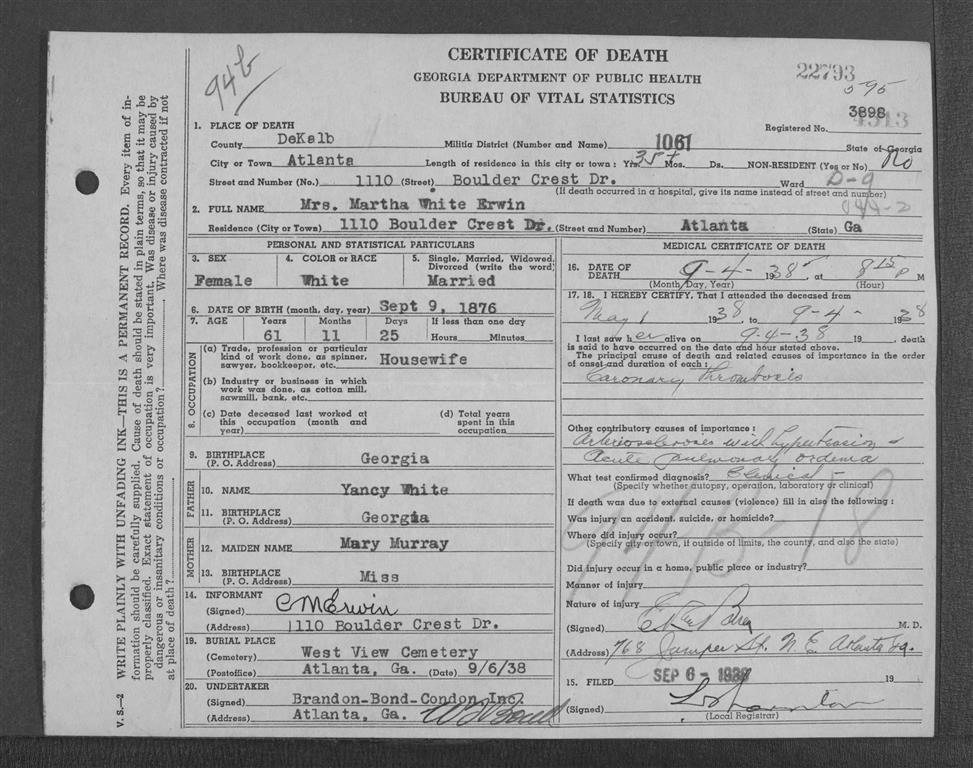 94b
CERTIFICATE OF DEATH
GEORGIA DEPARTMENT OF PUBLIC HEALTH
BUREAU OF VITAL STATISTICS
22793
595
3898
Registered No.
1. PLACE OF DEATH
County DeKalb Militia District (Number and Name) 1061 State of Georgia
City or Town Atlanta Length of residence in this city or town: Yrs. 35+ Mos. Ds. NON-RESIDENT (Yes or No) No
Street and Number (No.) 1110 (Street) Boulder Crest Dr. Ward D-9
(If death occurred in a hospital, give its name instead of street and number)
2. FULL NAME Mrs. Martha White Erwin
Residence (City or Town) 1110 Boulder Crest Dr. (Street and Number) Atlanta (State) Ga
PERSONAL AND STATISTICAL PARTICULARS
3. SEX 4. COLOR or RACE 5. Single, Married, Widowed, Divorced (write the word)
Female White Married
6. DATE OF BIRTH (month, day, year) Sept 9, 1876
7. AGE Years Months Days If less than one day
61 11 25 Hours Minutes
8. OCCUPATION
(a) Trade, profession or particular
kind of work done, as spinner,
sawyer, bookkeeper, etc. Housewife
(b) Industry or business in which
work was done, as cotton mill,
sawmill, bank, etc.
(c) Date deceased last worked at
this occupation (month and
year)
(d) Total years
spent in this
occupation
9. BIRTHPLACE
(P. O. Address) Georgia
FATHER
10. NAME Yancy White
11. BIRTHPLACE
(P. O. Address) Georgia
MOTHER
12. MAIDEN NAME Mary Murray
13. BIRTHPLACE
(P. O. Address) Miss
14. INFORMANT
(Signed) C M Erwin
(Address) 1110 Boulder Crest Dr.
19. BURIAL PLACE
(Cemetery) West View Cemetery
(Postoffice) Atlanta, Ga. (Date) 9/6/38
20. UNDERTAKER
(Signed) Brandon-Bond-Condon, Inc.
(Address) Atlanta, Ga.
MEDICAL CERTIFICATE OF DEATH
16. DATE OF
DEATH 9-4-1938, at 8 15 P M
(Month, Day, Year) (Hour)
17. 18. I HEREBY CERTIFY, That I attended the deceased from
May 1 1938, to 9-4- 1938
I last saw her alive on 9-4-38 19 , death
is said to have occurred on the date and hour stated above.
The principal cause of death and related causes of importance in the order
of onset and duration of each:
Coronary Thrombosis
Other contributory causes of importance:
Arteriosclerosis with hypertension &
Acute pulmonary oedema
What test confirmed diagnosis? Clinical
(Specify whether autopsy, operation, laboratory or clinical)
If death was due to external causes (violence) fill in also the following:
Was injury an accident, suicide, or homicide?
Where did injury occur?
(Specify city or town, if outside of limits, the county, and also the state)
Did injury occur in a home, public place or industry?
Manner of injury
Nature of injury
(Signed) M. D.
(Address) 768 Juniper St. N. E. Atlanta Ga.
15. FILED SEP 6 - 1938 19
(Signed)
(Local Registrar)
V. S.—2 WRITE PLAINLY WITH UNFADING INK—THIS IS A PERMANENT RECORD. Every item of in-
formation should be carefully supplied. Cause of death should be stated in plain terms, so that it may be
properly classified. Exact statement of occupation is very important. Was disease or injury caused by
dangerous or insanitary conditions or occupation? Where was disease contracted if not
at place of death?